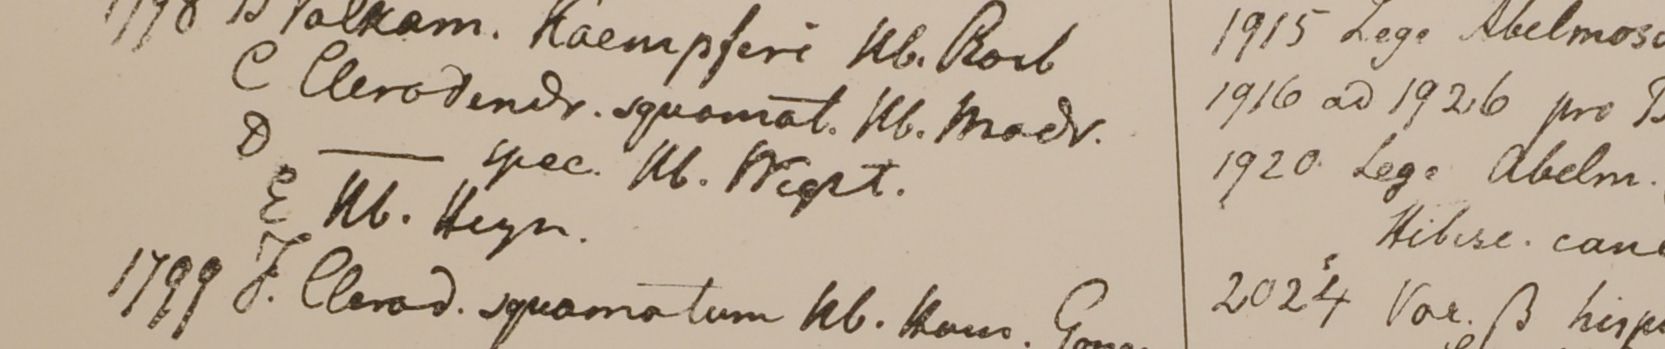 1798 B Volkam. Kaempferi Hb. Roxb
C Clerodendr. squamat. Hb. Madr.
D —— spec. Hb. Wight.
E Hb. Heyn.
1799 F. Clerod. squamatum Hb. Ham.
1915 Lege
1916 ad 1926 pro
1920 Lege Abelm.
Hibisc.
2024 Var. β